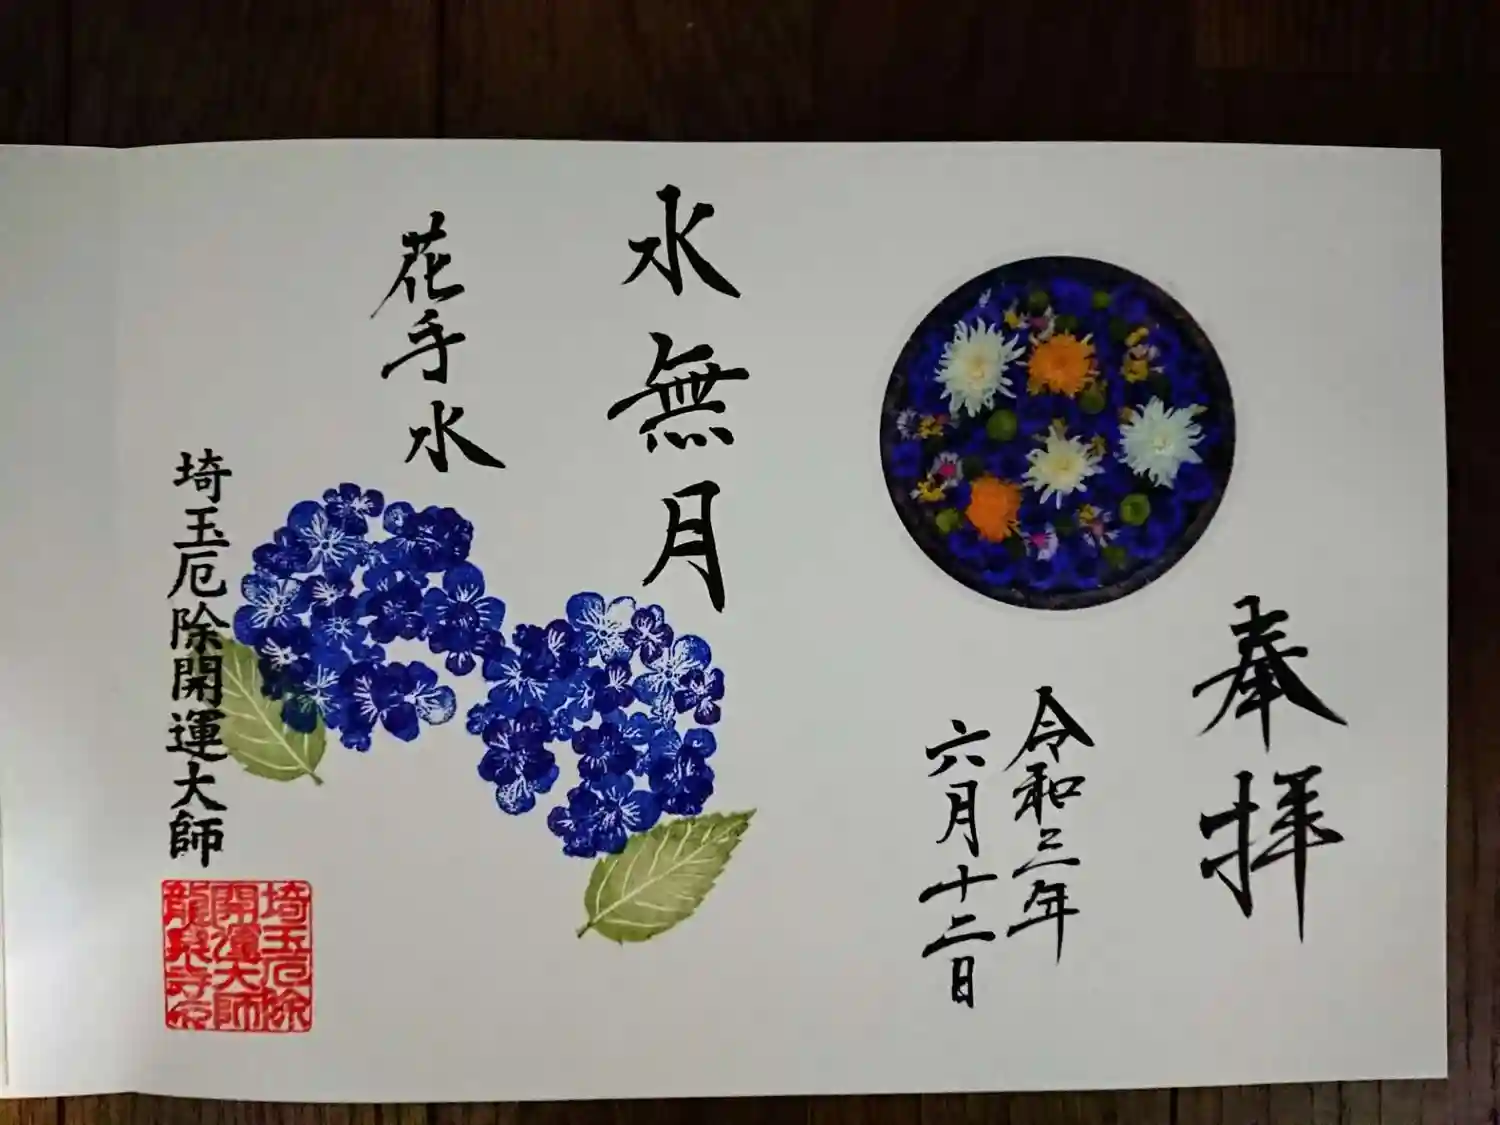 奉拝
令和三年
六月十二日
水無月
花手水
埼玉厄除開運大師
埼玉厄除
開運大師
龍泉寺印